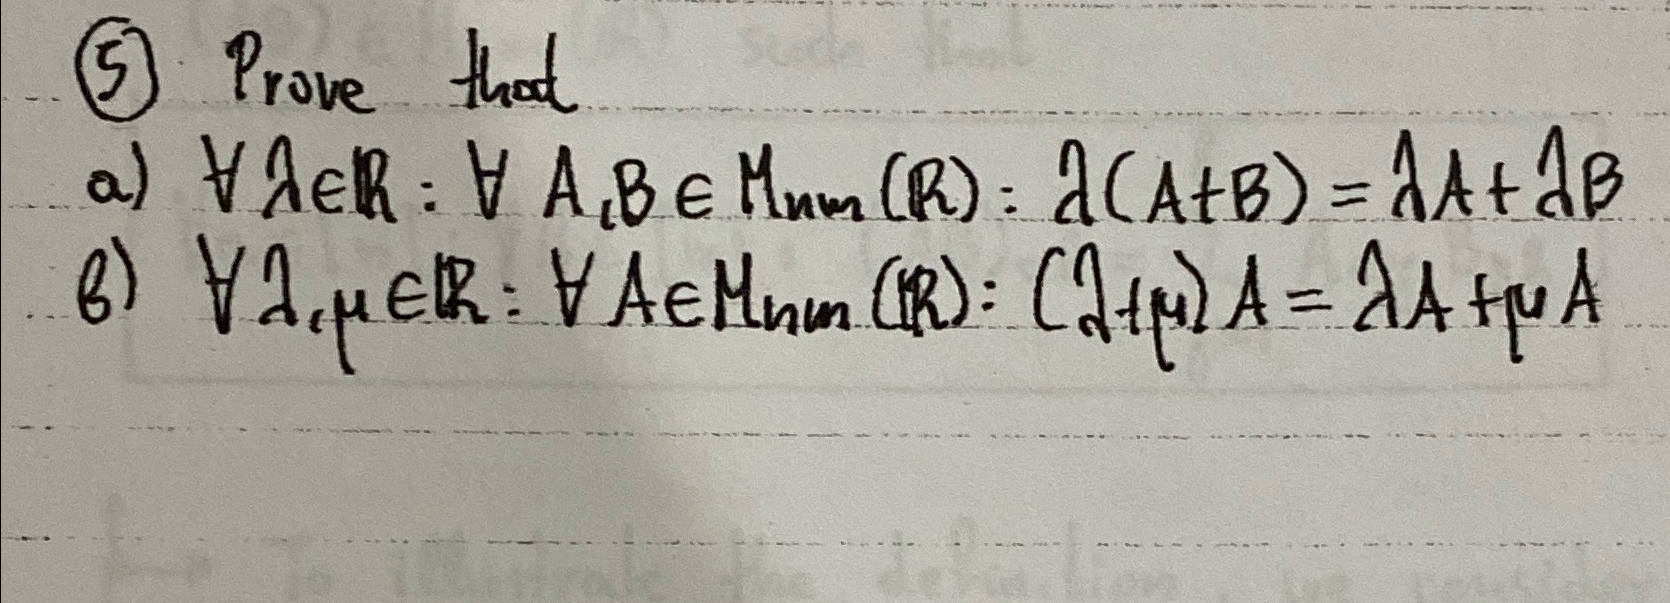 ⑤ Prove that
a) ∀ λ∈ℝ : ∀ A,B ∈ Mnm (ℝ) : λ(A+B) = λA + λB
b) ∀ λ,μ ∈ℝ : ∀ A∈Mnm (ℝ) : (λ+μ) A = λA + μ A